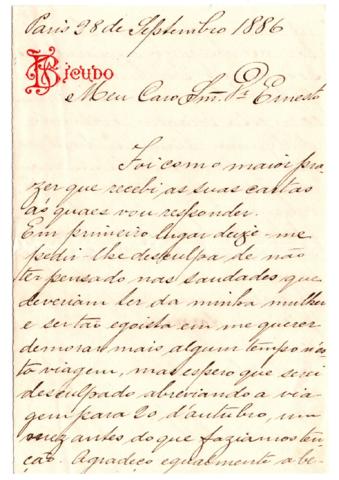 Paris 28 de Septembro 1886
BICUDO
Meu Caro Snr. Dr. Ernesto
Foi com o maior pra
zer que recebi as suas cartas
ás quaes vou responder.
Em primeiro lugar deixe-me
pedir-lhe desculpa de não
ter pensado nas saudades que
deveriam ser da minha mulher
e ser tão egoista em me querer
demorar mais algum tempo n'es
ta viagem, mas espero que serei
desculpado abreviando a via
gem para 20 d'outubro, um
mez antes do que faziamos ten
ção. Agradeço egualmente a be-